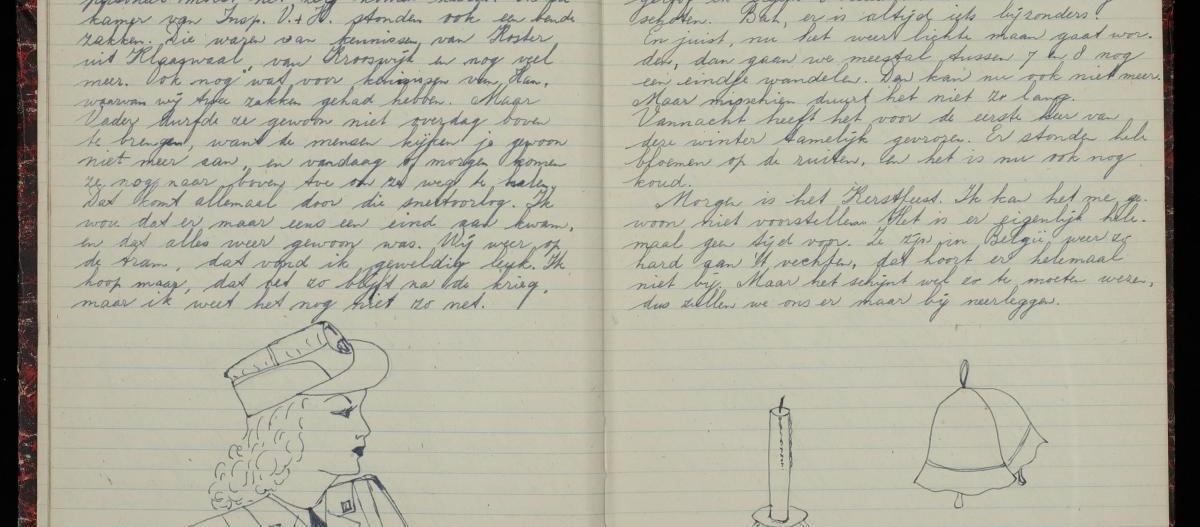 kamer van Insp. V. + H. stonden ook een bende
zakken. Die waren van kennissen, van Koster
uit Klaaswaal, van Krooswijk en nog veel
meer. Ook nog wat voor kennissen van Han,
waarvan wij twee zakken gehad hebben. Maar
Vader durfde ze gewoon niet overdag boven
te brengen, want de mensen kijken je gewoon
niet meer aan, en vandaag of morgen komen
ze nog naar boven toe om ze weg te halen.
Dat komt allemaal door die sneltoorlog. Ik
wou dat er maar eens een eind aan kwam,
en dat alles weer gewoon was. Wij weer op
de tram, dat vond ik geweldig leuk. Ik
hoop maar, dat het zo blijft na de krieg,
maar ik weet het nog niet zo net.
schoten. Bah, er is altijd iets bijzonders!
En juist, nu het weer lichte maan gaat wor-
den, dan gaan we meestal tussen 7 en 8 nog
een eindje wandelen. Dan kan nu ook niet meer.
Maar misschien duurt het niet zo lang.
Vannacht heeft het voor de eerste keer van
deze winter tamelijk gevrozen. Er stonden hele
bloemen op de ruiten, en het is nu ook nog
koud.
Morgen is het Kerstfeest. Ik kan het me ge-
woon niet voorstellen. Het is er eigenlijk hele-
maal geen tijd voor. Ze zijn in België, weer zo
hard aan 't vechten, dat hoort er helemaal
niet bij. Maar het schijnt wel zo te moeten wezen,
dus zullen we ons er maar bij neerleggen.